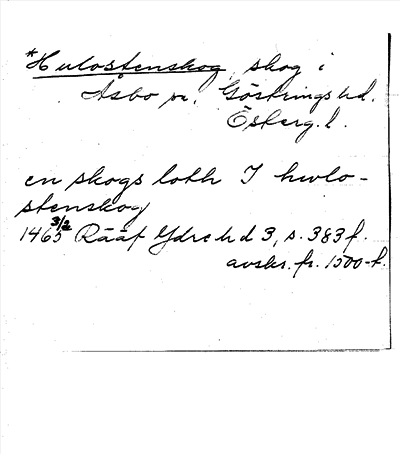 *Hulostenskog, skog i
Åsbo sn. Göstrings hd.
Österg. l.
en skogs loth I hwlo-
stenskog
1465 3/2 Rääf Ydre hd 3, s. 383 f.
avskr. fr. 1500-t.